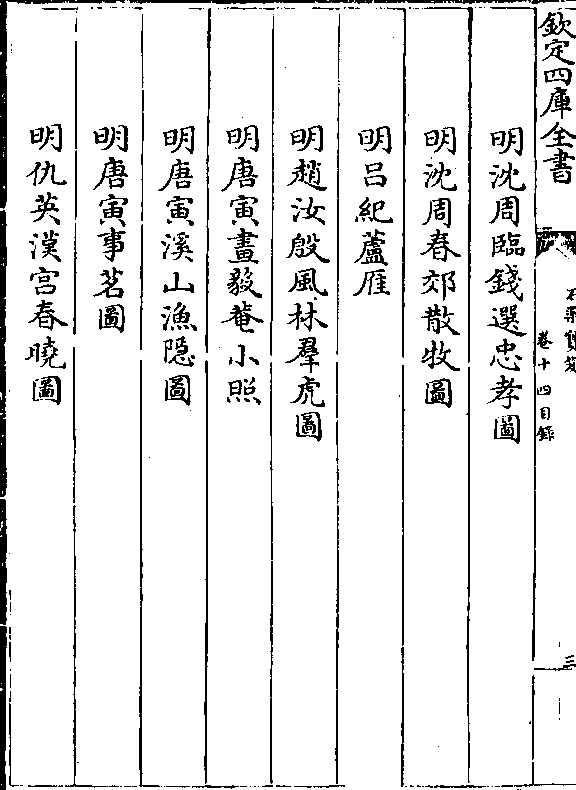 欽定四庫全書
石渠寳笈
卷十四目錄
三
明沈周臨錢選忠孝圖
明沈周春郊散牧圖
明呂紀蘆雁
明趙汝殷風林羣虎圖
明唐寅畫毅菴小照
明唐寅溪山漁隠圖
明唐寅事茗圖
明仇英漢宫春曉圖